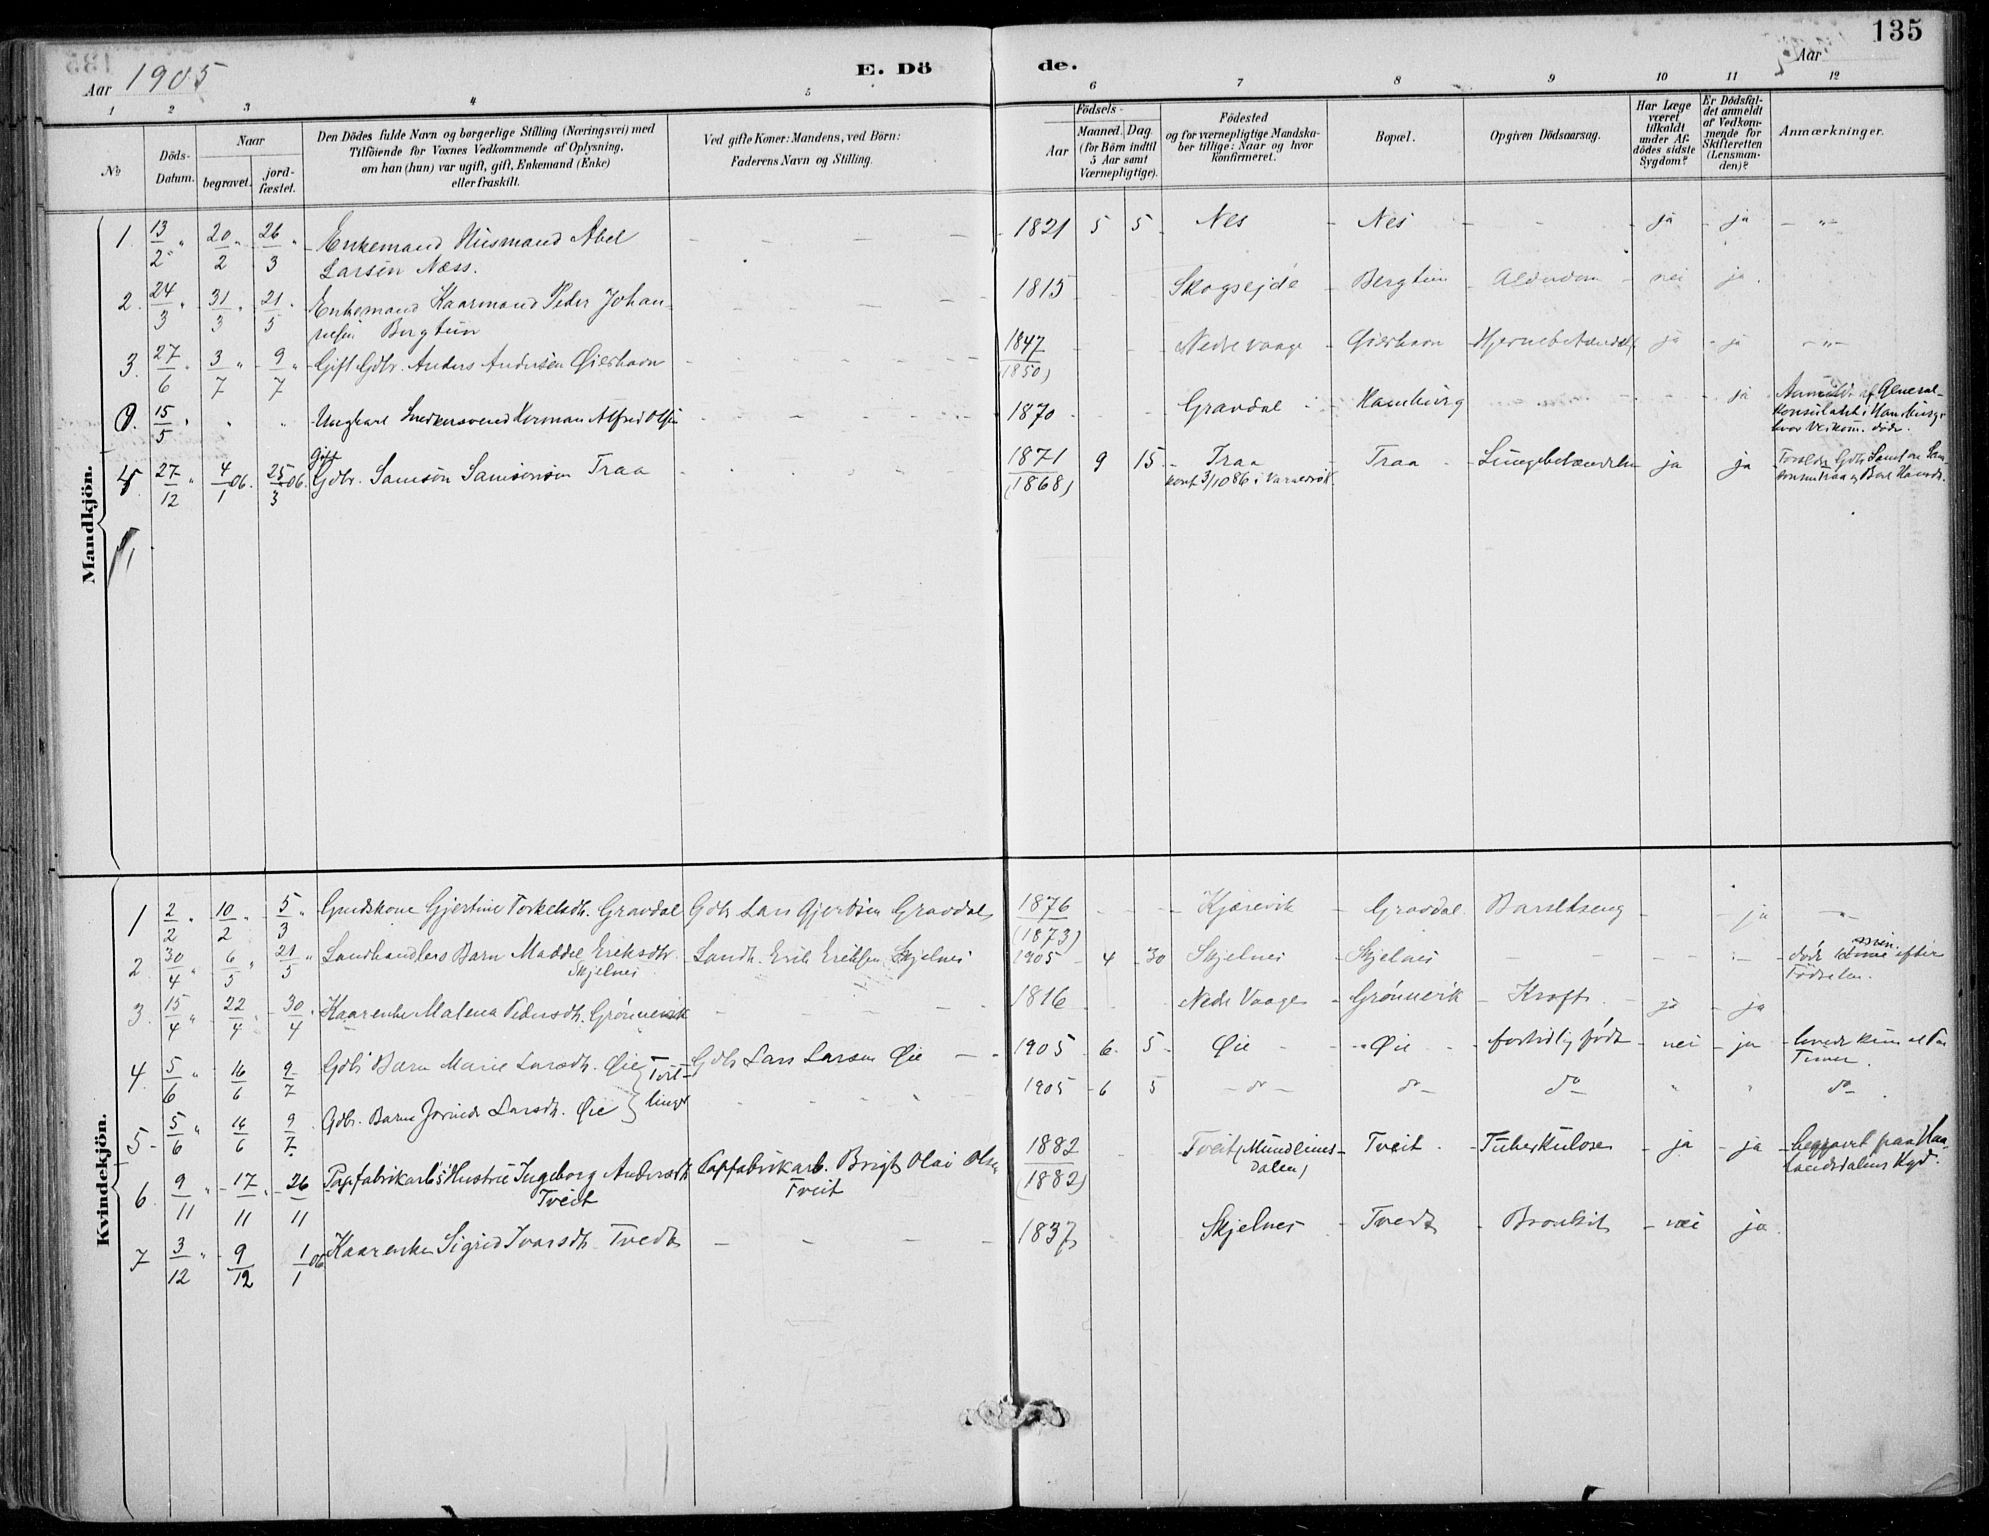 135
Aar 1905
E. Dö
de.
Aar
1 2 3 4 5 6 7 8 9 10 11 12
№
Döds-
Datum.
Naar
begravet.
jord-
fæstet.
Den Dödes fulde Navn og borgerlige Stilling (Næringsvei) med
Tilföiende for Voxnes Vedkommende af Oplysning,
om han (hun) var ugift, gift, Enkemand (Enke)
eller fraskilt.
Ved gifte Koner: Mandens, ved Börn:
Faderens Navn og Stilling.
Födsels-
Aar
Maaned. Dag.
(for Börn indtil
5 Aar samt
Værnepligtige).
Födested
og for værnepligtige Mandska-
ber tillige: Naar og hvor
konfirmeret.
Bopæl.
Opgiven Dödsaarsag.
Har Læge
været
tilkaldt
under Af-
dödes sidste
Sygdom?
Er Dödsfal-
det anmeldt
af Vedkom-
mende for
Skifteretten
(Lensman-
den)?
Anmærkninger.
Mandkjön.
1. 13/2 " 20/2 " 26/3 " Enkemand Husmand Abel - - - - 1821 5 5 - Nes - Nes - - - ja - ja - " -
Larsen Næss.
2. 24/3 " 31/3 " 21/5 Enkemand Kaarmand Peder Johan- - - - - 1815 - - Skogsejde - Bergtun - Alderdom - nei - ja.
nesen Bergtun
3. 27/6 " 3/7 " 9/7 " Gift Gdbr. Anders Andersen Øierhavn - - - - 1847 - - Nedre vaage - Øierhavn - Hjernebetændelse ja - ja - " -
(1850)
15/5 " " " Ungkarl Snedkersvend Herman Alfred Olsen - - - - 1870 - - Gravdal - Hamburg - - ja Anmeldt af General-
konsulatet i Hamburg,
hvor Vedkom. døde.
27/12 4/1 06. 25/3 06. Gift
Gdbr. Samson Samsonsen Traa - - - - 1871 9 15 - Traa - Traa - Lungebetændelse ja ja Forældre Gdbr. Samson Sam-
(1868) konf. 3/10 86 i Varaldsøk.
Kvindekjön.
1 2/2 " 10/2 " 5/3 " Gaardskone Gjertine Torkelsdtr. Gravdal Gdbr. Lars Gjertsen Gravdal 1876 - - - Kjærevik - Gravdal. Barselseng - - ja - " -
(1873)
2. 30/4 " 6/5 " 21/5 " Landhandlers Barn Maddel Eriksdtr. - Landh. Erik Eriksen Skjelnes 1905 - 4 30 Skjelnes - Skjelnes - - - - - døde 10 min. efter
Skjelnes Fødselen.
3. 15/4 " 22/4 - 30/4 " Kaarenke Malena Pedersdtr. Grönnevik - - - - 1816 - - Nedre Vaage - Grönnevik - Kræft. - ja - ja
4. 5/6 " 16/6 9/7 Gdbr's Barn Marie Larsdtr. Øie Tvil- Gdbr Lars Larsen Øie - - 1905 - 6 - 5 - Øie - - Øie - for tidlig født - nei - ja - levede kun et Par
Timer.
5 - 5/6 " 16/6 9/7 Gdbr. Barn Larsdtr. Øie linger - - - - 1905 - 6 5 - do - do - do " " do
6. 9/11 " - 17/11 " - 26/11 Papfabrikarb's Hustrue Ingeborg Andersdtr. Papfabrikarb. Brigt Olai Olsen 1882 - Tveit (Mundeims- - Tveit - Tuberkulose - ja - ja - begravet paa Haa-
Tveit Tveit (1882) dalen) landsdalens Kgd.
7 3/12 " - 9/12 1/1 06 Kaarenke Sigrid Ivarsdtr. Tvedt - - - - 1837 - Skjelnes - Tvedt - Bronkit - nei - ja